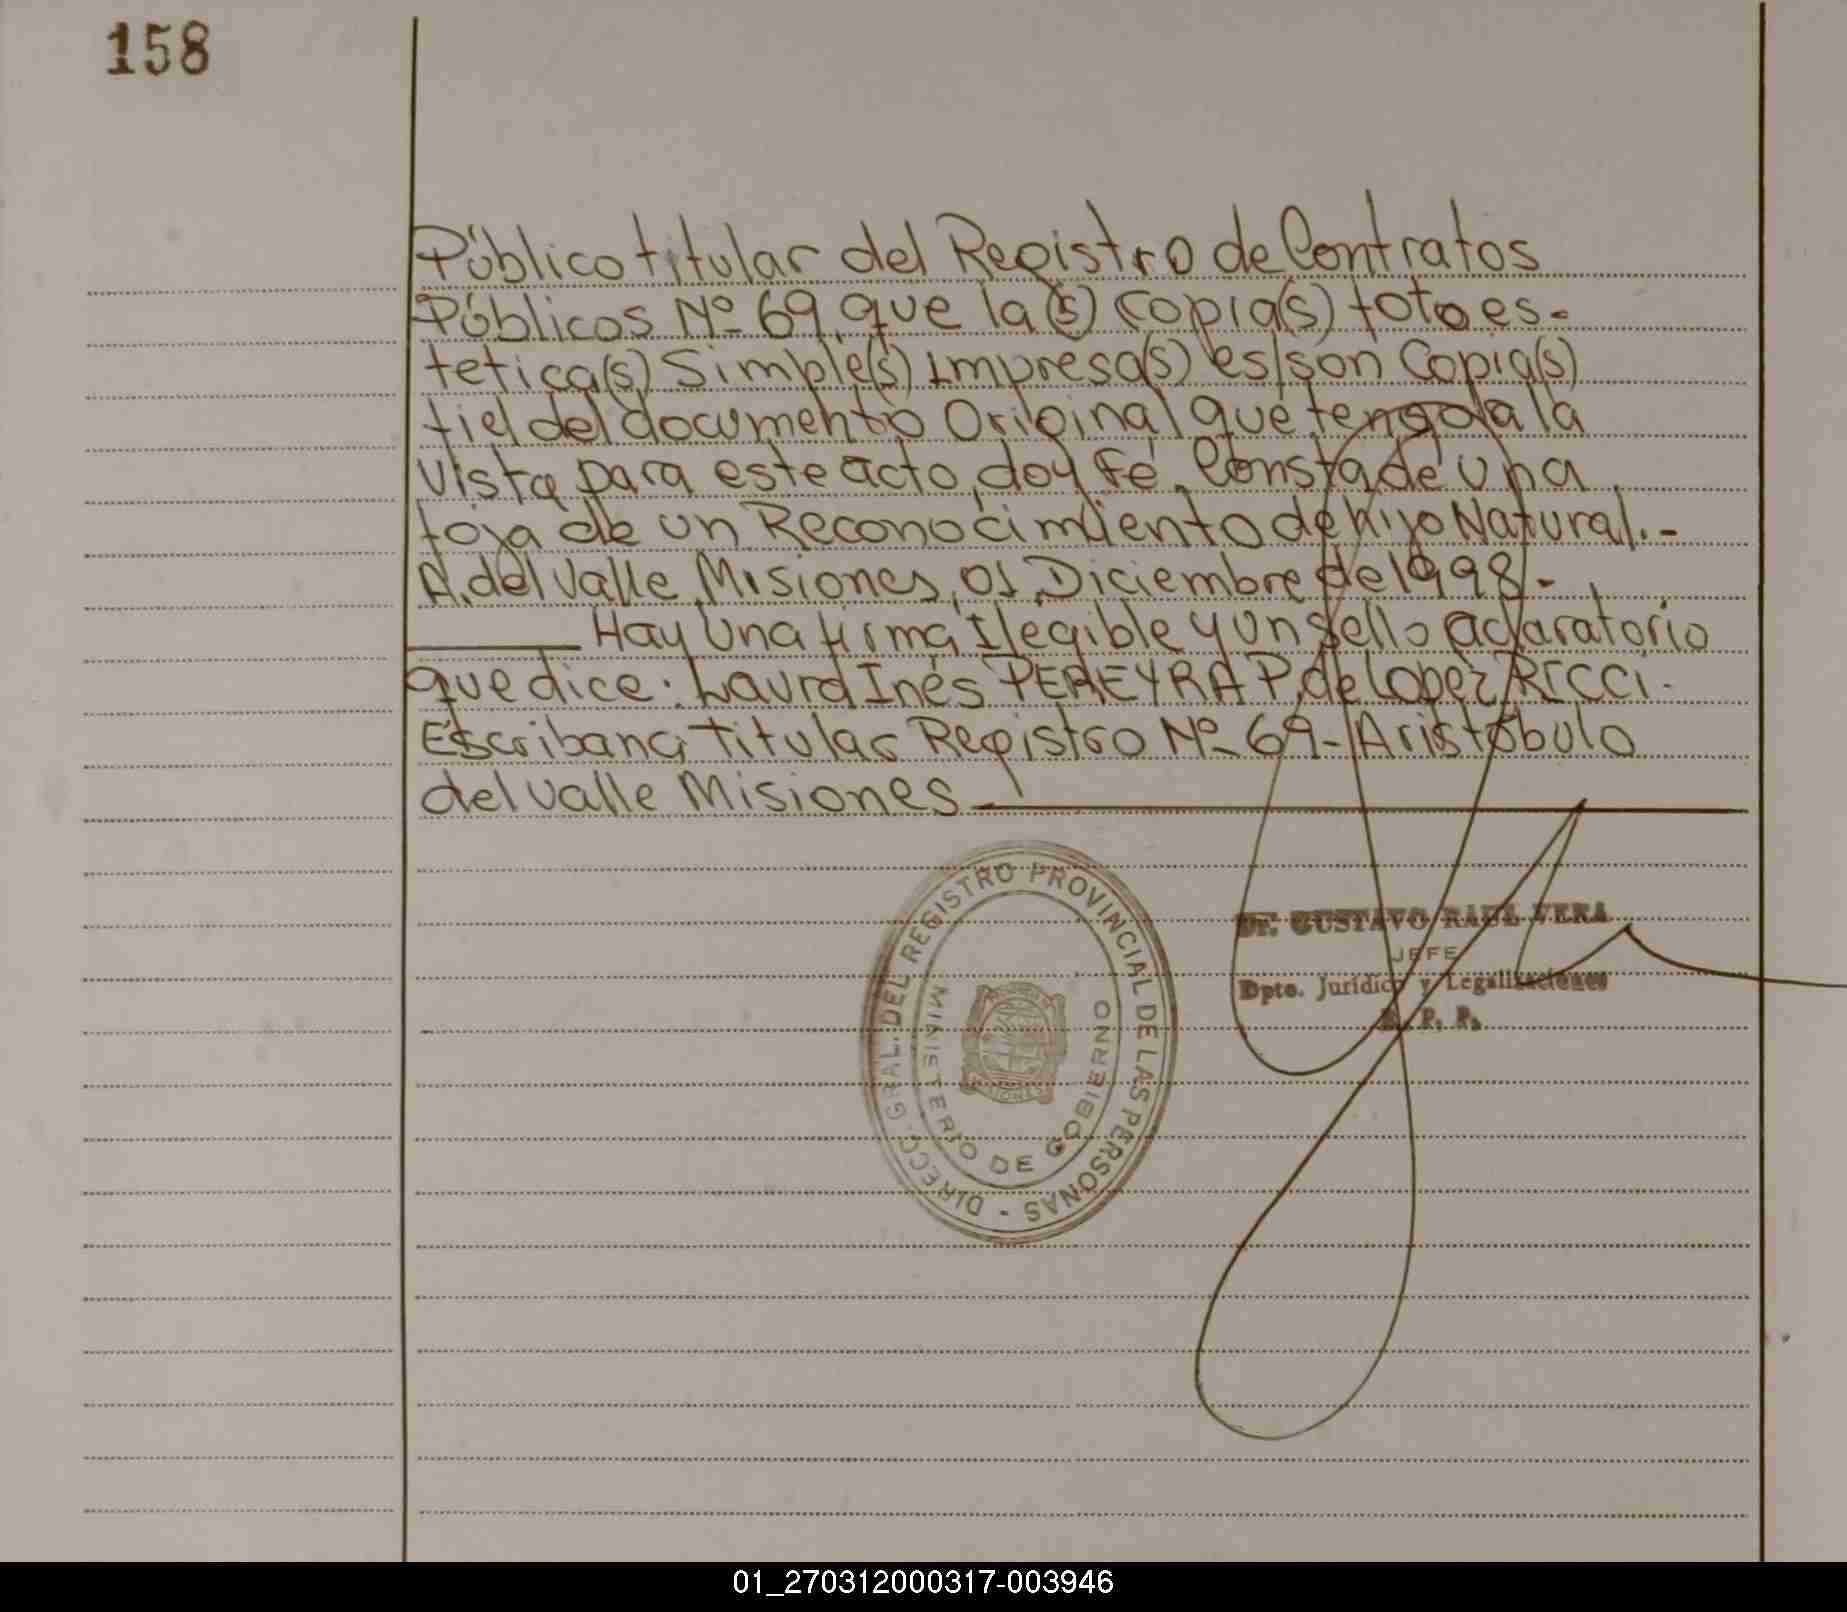 158
Público titular del Registro de Contratos
Públicos Nº 69, que la(s) copia(s) fotoes-
tetica(s) Simple(s) Impresa(s) es/son Copia(s)
fiel del documento Original que tengo a la
vista para este acto, doy fé. Consta de una
foja de un Reconocimiento de hijo Natural.-
A. del Valle, Misiones, 01, Diciembre de 1998.-
Hay Una firma Ilegible y un sello aclaratorio
que dice: Laura Inés PEREYRA P. de Lopez RICCI.
Escribana Titular Registro Nº 69 - Aristóbulo
del Valle Misiones
DIRECC. GRAL. DEL REGISTRO PROVINCIAL DE LAS PERSONAS -
MINISTERIO DE GOBIERNO
Dr. GUSTAVO RAUL VERA
JEFE
Dpto. Jurídico y Legalizaciones
R. P. P.
01_270312000317-003946